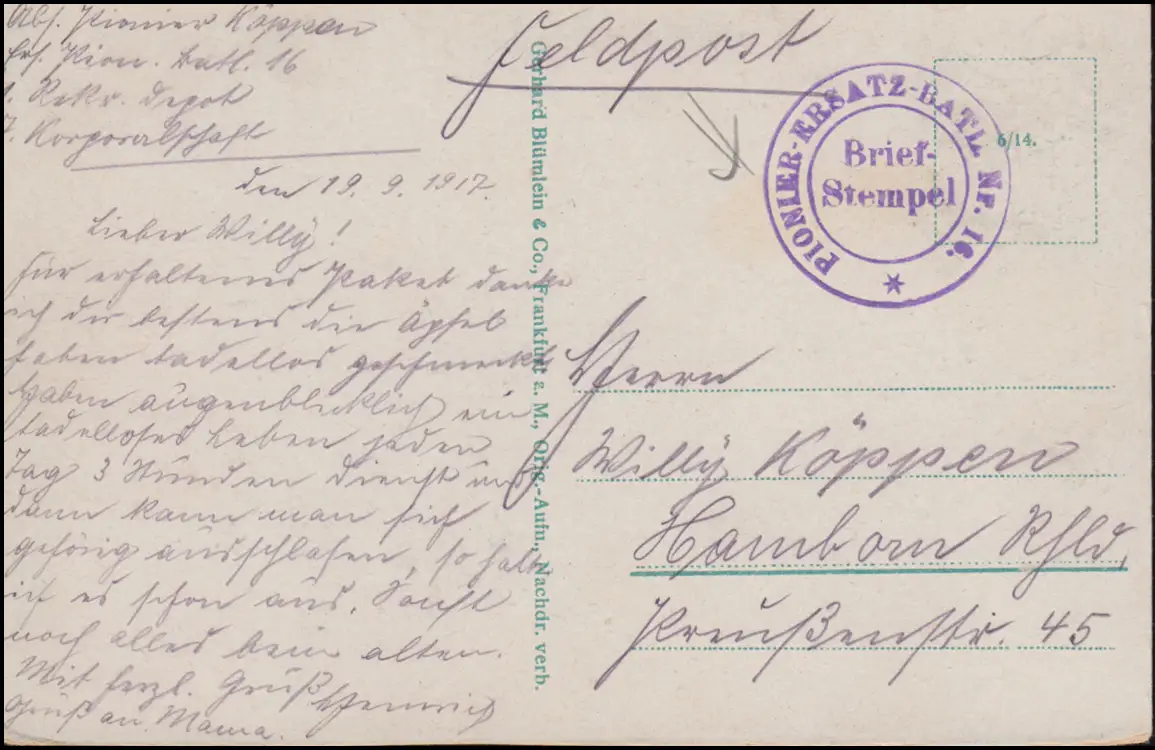 Abs. Pionier Köppen
Ers. Pion. Batl. 16
1. Rekr. Depot
7. Korporalschaft
den 19. 9. 1917.
Lieber Willy!
Für erhaltenes Paket danke
ich dir bestens die Äpfel
haben tadellos geschmeckt
Haben augenblicklich ein
tadelloses Leben jeden
Tag 3 Stunden Dienst und
dann kann man sich
gehörig ausschlafen, so halte
ich es schon aus. Sonst
noch alles beim alten.
Mit herzl. Gruß Heinrich
Gruß an Mama.
Gerhard Blümlein & Co., Frankfurt a. M., Orig.-Aufn., Nachdr. verb.
Feldpost
PIONIER-ERSATZ-BATL. Nr. 16.
Brief-
Stempel
6/14.
Herrn
Willy Köppen
Hamborn Rhld.
Preußenstr. 45